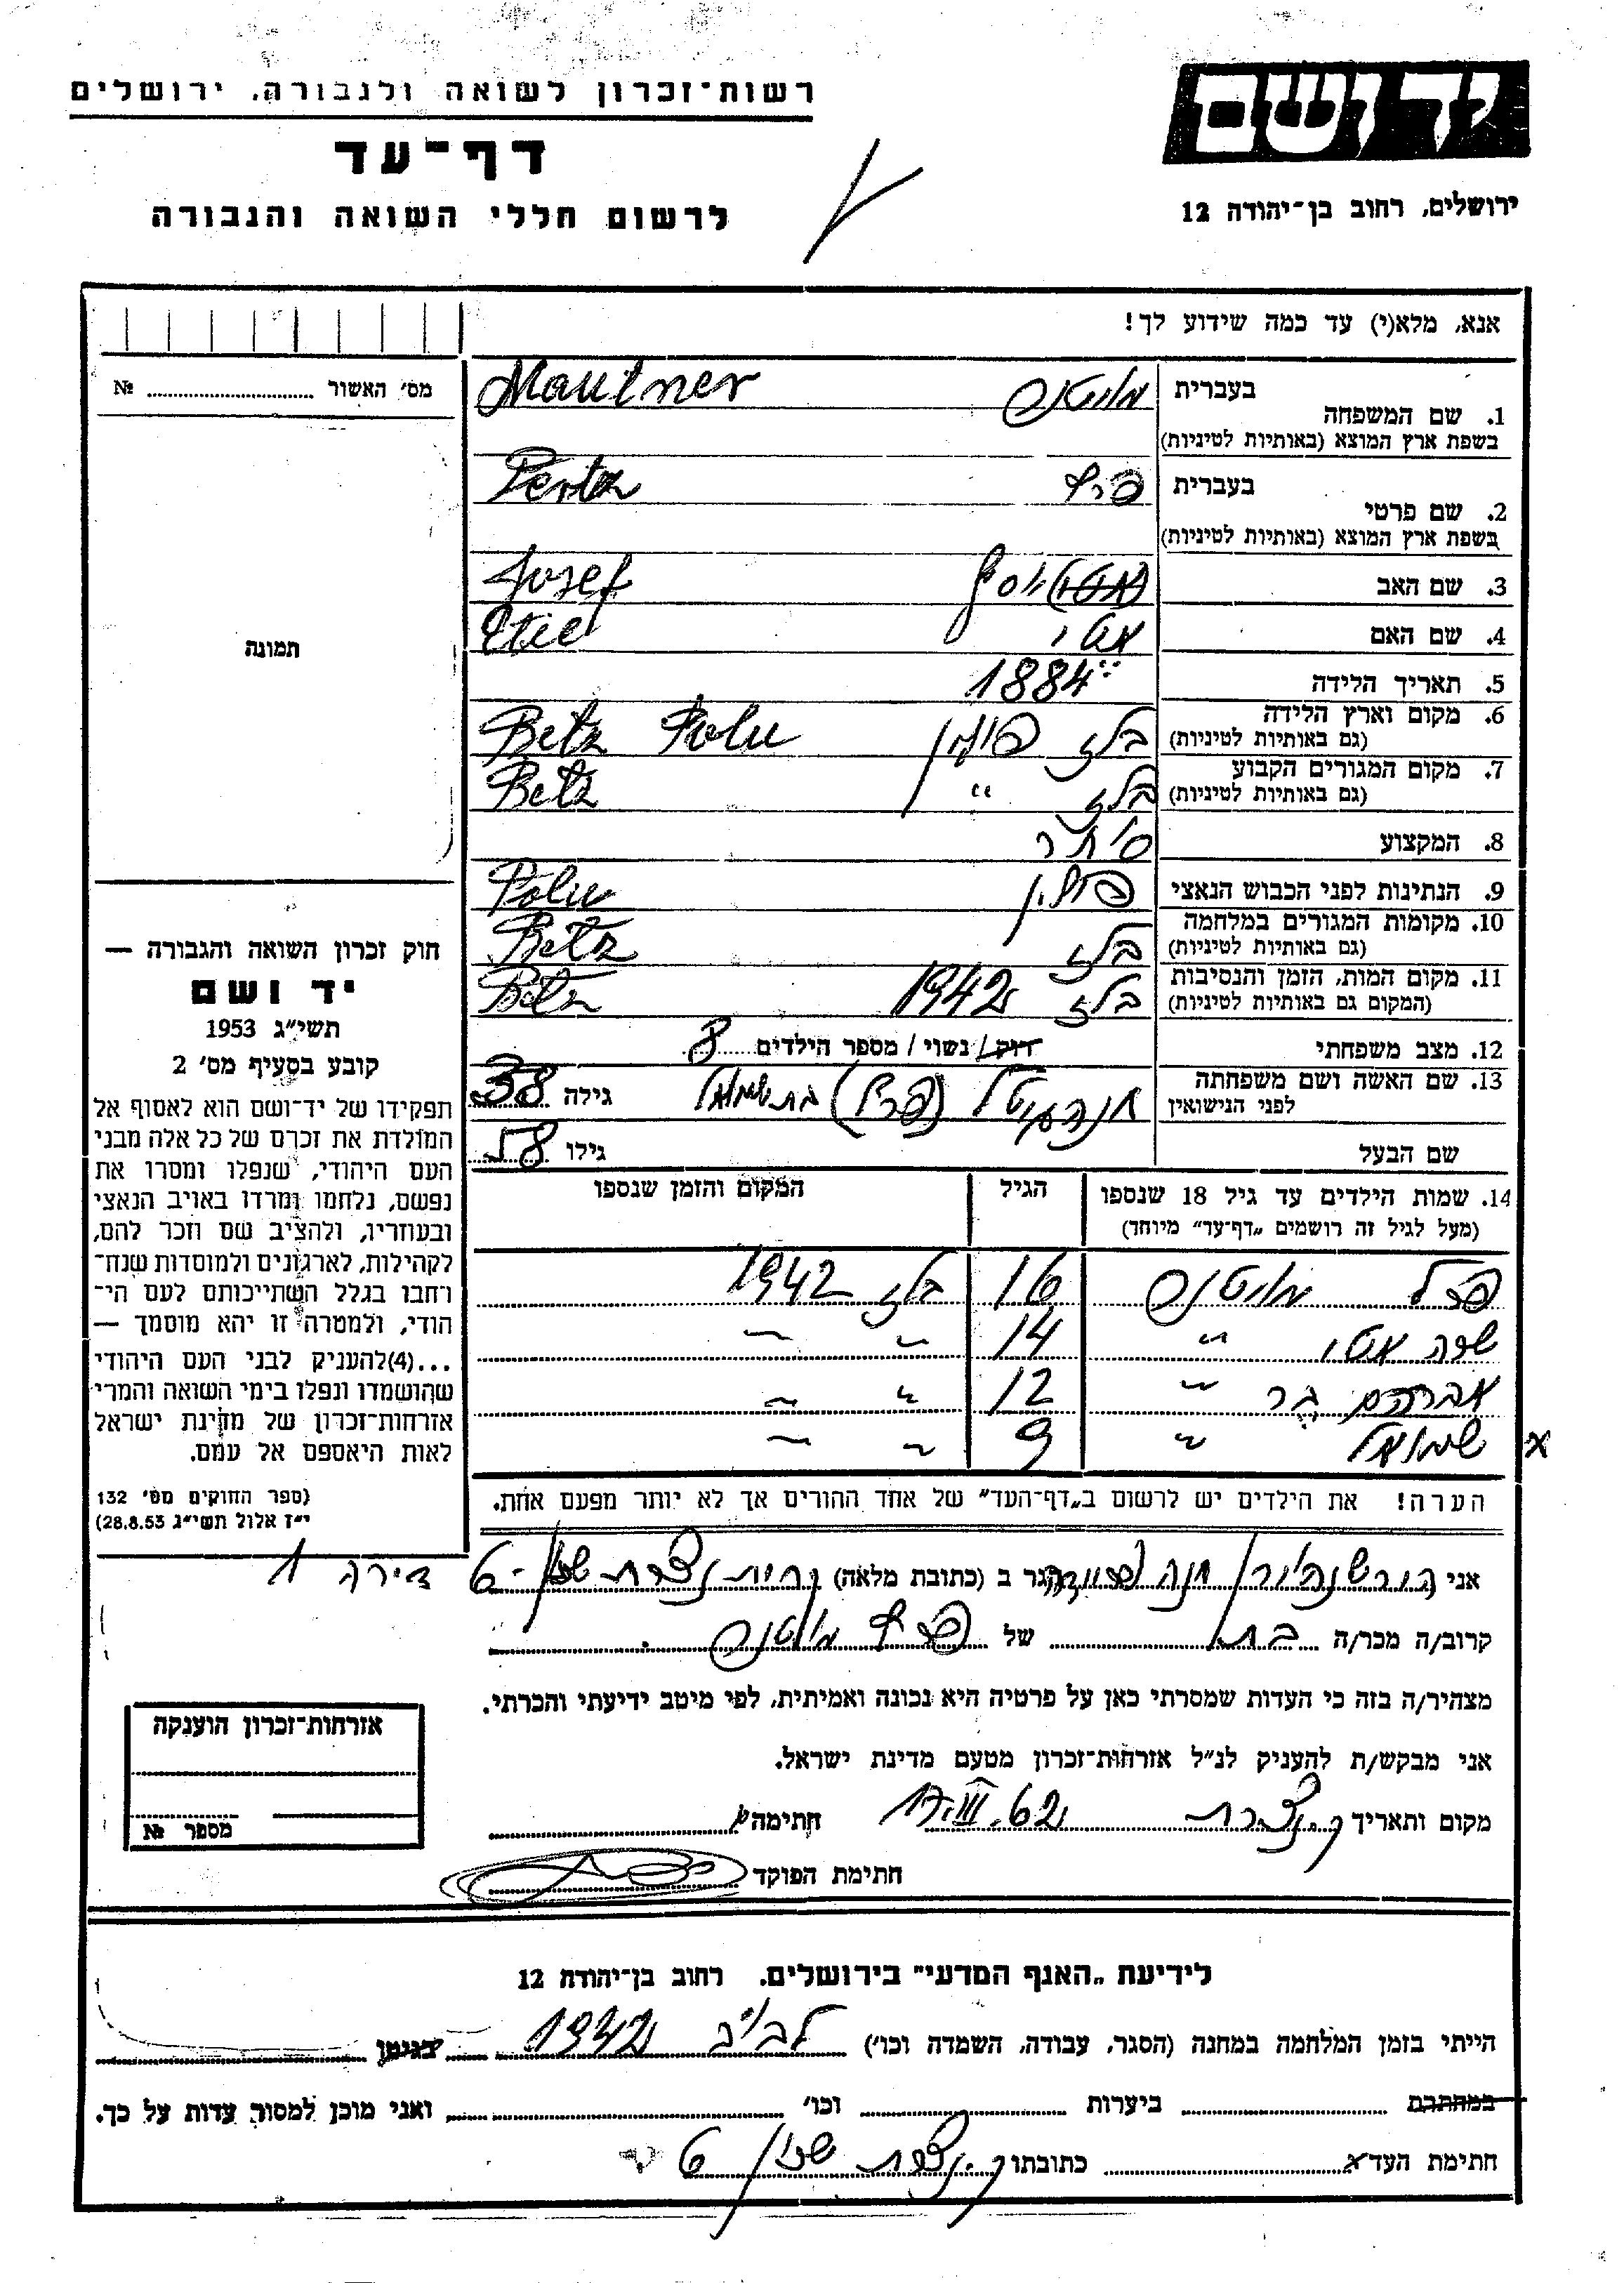 יד ושם
ירושלים, רחוב בן-יהודה 12
רשות-זכרון לשואה ולגבורה, ירושלים
דף-עד
לרשום חללי השואה והגבורה
אנא, מלא(י) עד כמה שידוע לך!
מס' האשור № 
תמונה
1. שם המשפחה בעברית
מאוטנר Mautner
בשפת ארץ המוצא (באותיות לטיניות)
2. שם פרטי בעברית
פרץ Pertz
בשפת ארץ המוצא (באותיות לטיניות)
3. שם האב יוסף Josef
4. שם האם אטי Etie
5. תאריך הלידה 1884
6. מקום וארץ הלידה בלז פולין Belz Polu
(גם באותיות לטיניות)
7. מקום המגורים הקבוע בלז " Belz
(גם באותיות לטיניות)
8. המקצוע סוחר
9. הנתינות לפני הכבוש הנאצי פולין Polu
10. מקומות המגורים במלחמה בלז Belz
(גם באותיות לטיניות)
11. מקום המות, הזמן והנסיבות בלז 1942 Belz
(המקום גם באותיות לטיניות)
12. מצב משפחתי רוק / נשוי / מספר הילדים 8
13. שם האשה ושם משפחתה לפני הנישואין בת שמואל גילה 38
שם הבעל גילו 58
14. שמות הילדים עד גיל 18 שנספו הגיל המקום והזמן שנספו
(מעל לגיל זה רושמים „דף-עד" מיוחד)
מאוטנר 16 בלז 1942
שרה אטי " 14 " "
אברהם " 12 " "
שמואל " 9 " "
x
הערה! את הילדים יש לרשום ב„דף-העד" של אחד ההורים אך לא יותר מפעם אחת.
חוק זכרון השואה והגבורה —
יד ושם
תשי"ג 1953
קובע בסעיף מס' 2
תפקידו של יד-ושם הוא לאסוף אל
המולדת את זכרם של כל אלה מבני
העם היהודי, שנפלו ומסרו את
נפשם, נלחמו ומרדו באויב הנאצי
ובעוזריו, ולהציב שם וזכר להם,
לקהילות, לארגונים ולמוסדות שנח-
רחבו בגלל השתייכותם לעם הי-
הודי, ולמטרה זו יהא מוסמך —
...(4)להעניק לבני העם היהודי
שהושמדו ונפלו בימי השואה והמרי
אזרחות-זכרון של מדינת ישראל
לאות היאספם אל עמם.
(ספר החוקים מס' 132
י"ז אלול תשי"ג 28.8.53)
אני הגר ב (כתובת מלאה) קרית נצרת שכון-6 דירה 1
קרוב/ה מכר/ה בת של פרץ מאוטנר
מצהיר/ה בזה כי העדות שמסרתי כאן על פרטיה היא נכונה ואמיתית, לפי מיטב ידיעתי והכרתי.
אני מבקש/ת להעניק לנ"ל אזרחות-זכרון מטעם מדינת ישראל.
מקום ותאריך ק. נצרת 17.III.62 חתימה
חתימת הפוקד
אזרחות-זכרון הוענקה
מספר №
לידיעת „האגף המדעי" בירושלים, רחוב בן-יהודה 12
הייתי בזמן המלחמה במחנה (הסגר, עבודה, השמדה וכו') לבוב 1942 בגיטו
במחתרת ביערות וכו' ואני מוכן למסור עדות על כך.
חתימת העד כתובתו ק. נצרת שכון 6